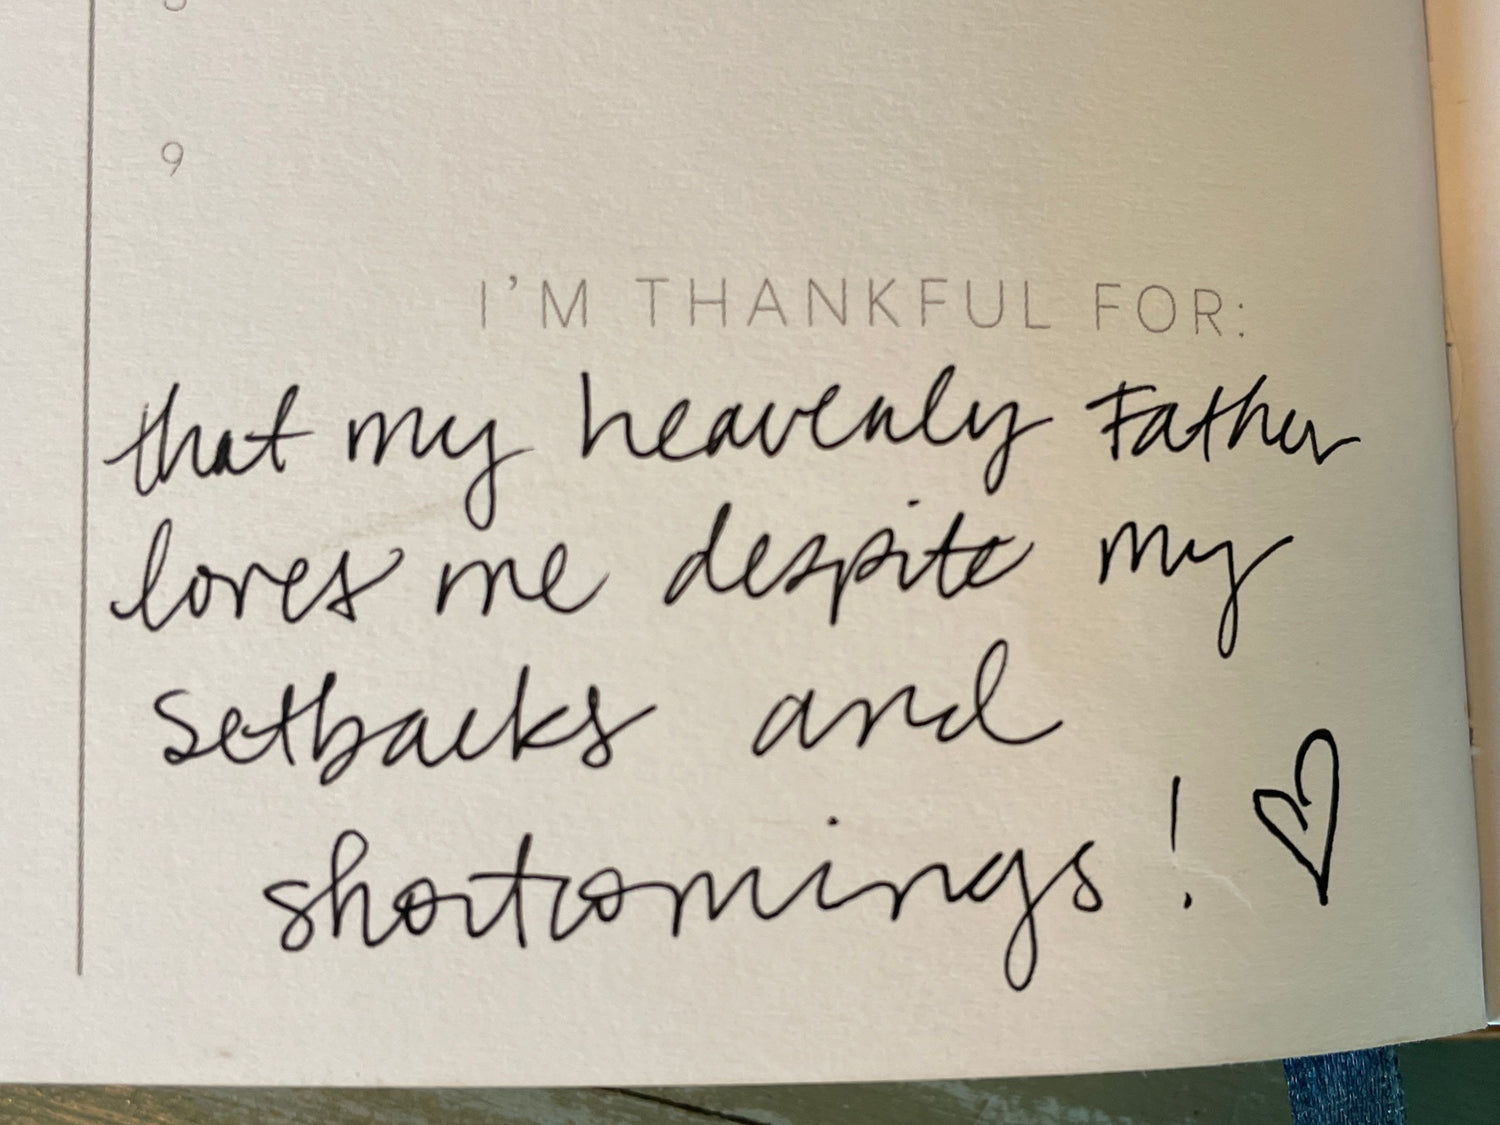 9
I'M THANKFUL FOR:
that my heavenly Father
loves me despite my
setbacks and
shortcomings! ♡